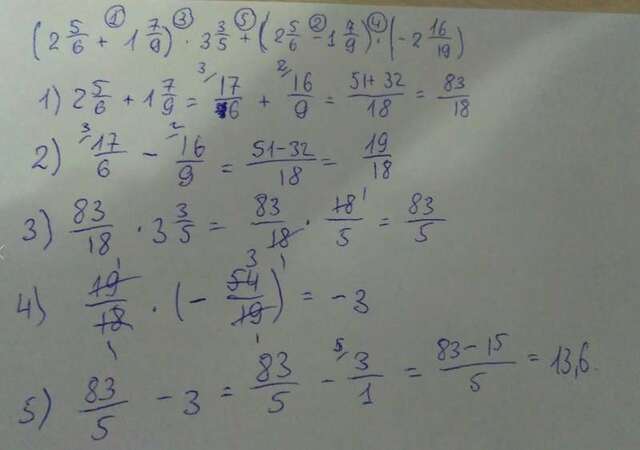 (2 5/6 + 1 7/9) · 3 3/5 + (2 5/6 - 1 7/9) · (-2 16/19)
1) 2 5/6 + 1 7/9 = 17/6 + 16/9 = 51+32/18 = 83/18
2) 17/6 - 16/9 = 51-32/18 = 19/18
3) 83/18 · 3 3/5 = 83/18 · 18/5 = 83/5
4) 19/18 · (- 54/19) = -3
5) 83/5 - 3 = 83/5 - 3/1 = 83-15/5 = 13,6.